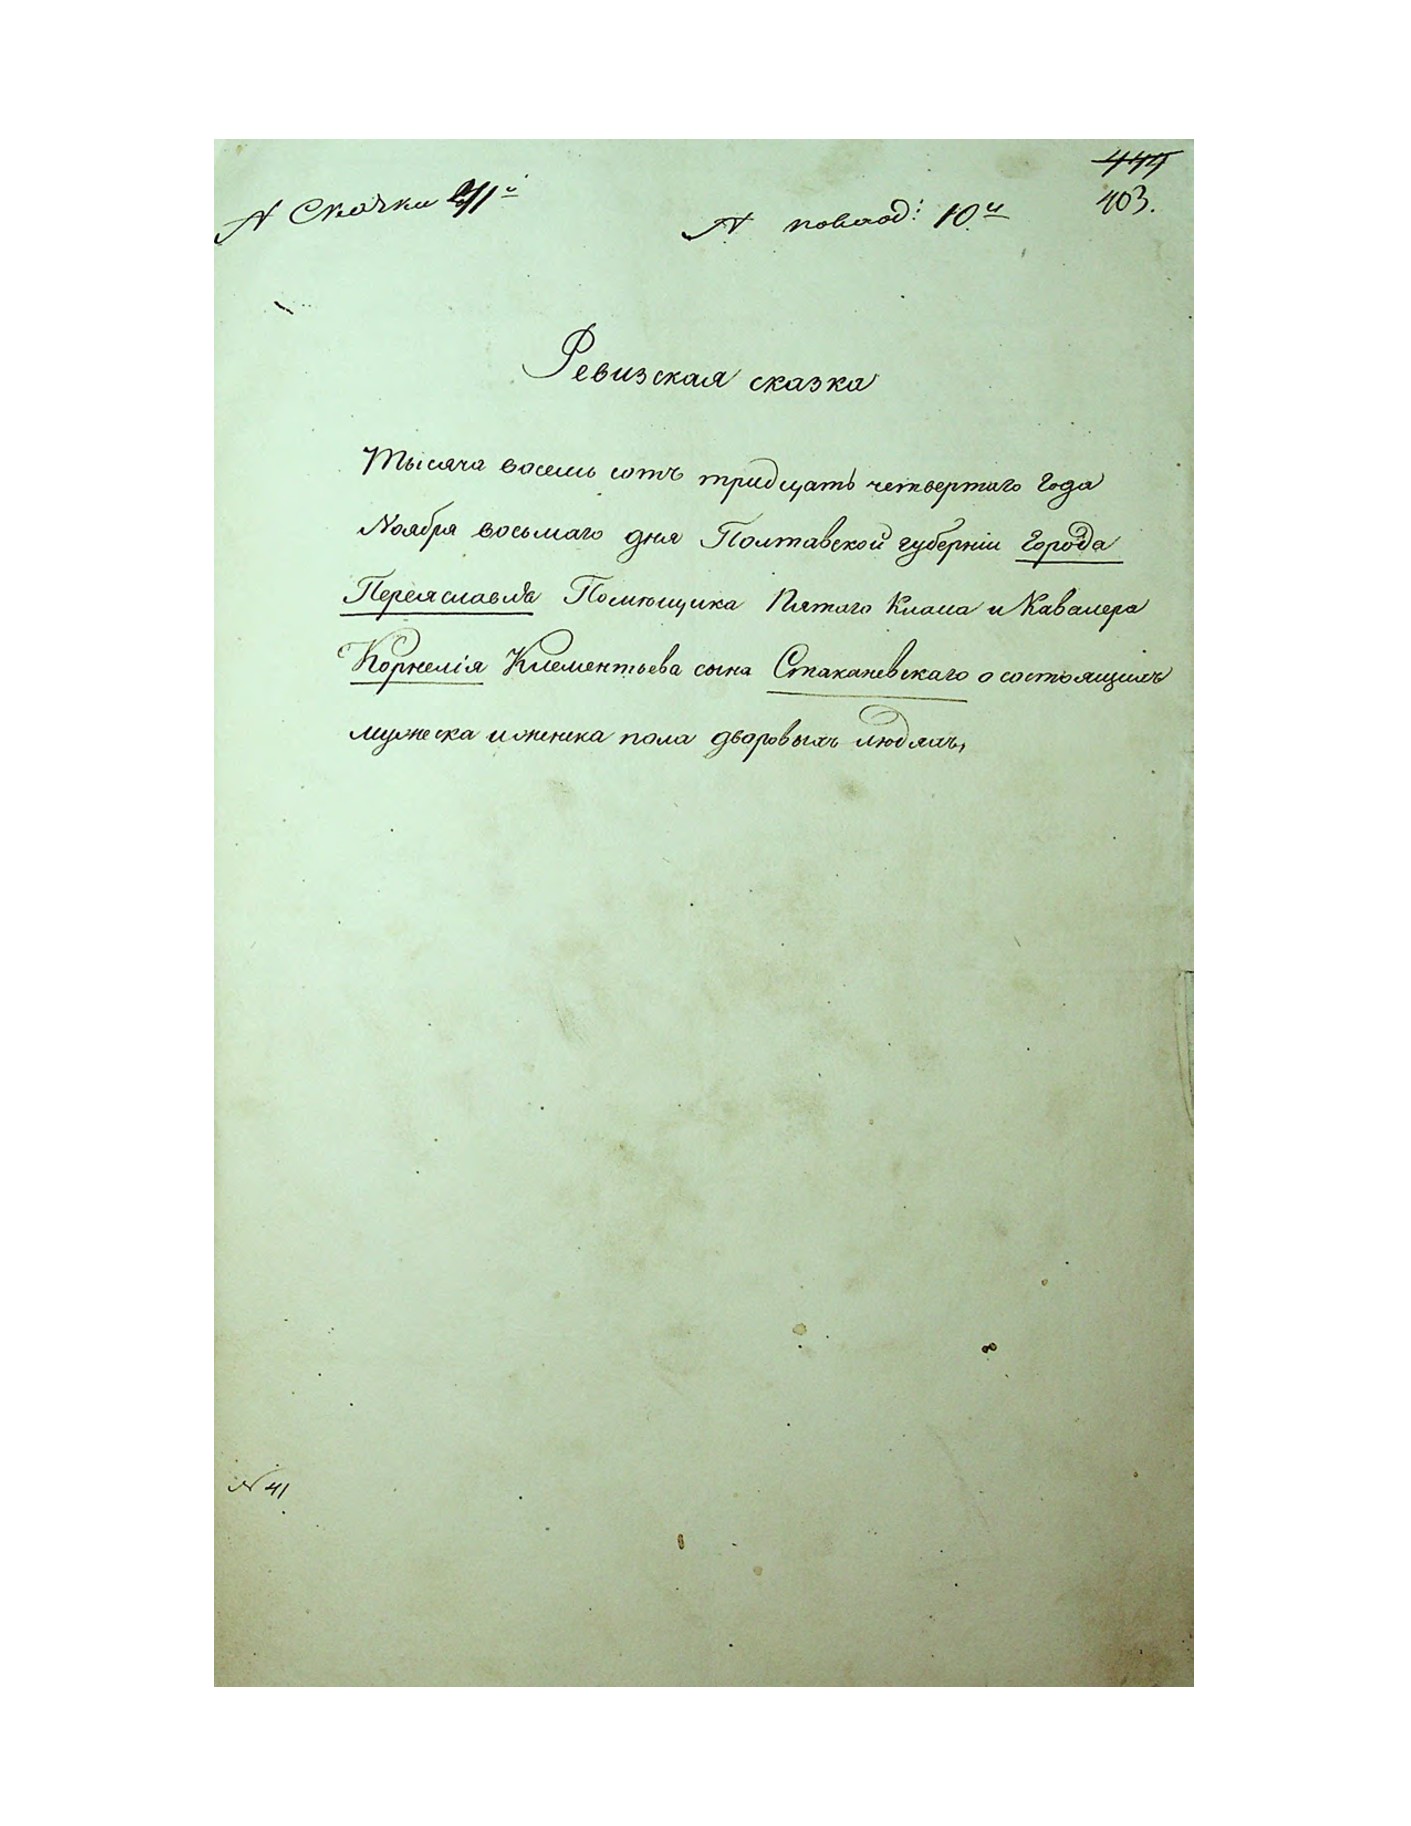 № Скаски 41й
№ повлад: 10й
444
403.
Ревизская сказка
Тысяча восемь сотъ тридцать четвертаго года
Ноября восьмаго дня Полтавской губерніи города
Переяславля Помѣщика Пятаго Класа и Кавалера
Корнелія Клементьева сына Стаканевскаго о состоящихъ
мужеска и женска пола дворовыхъ людяхъ,
№ 41